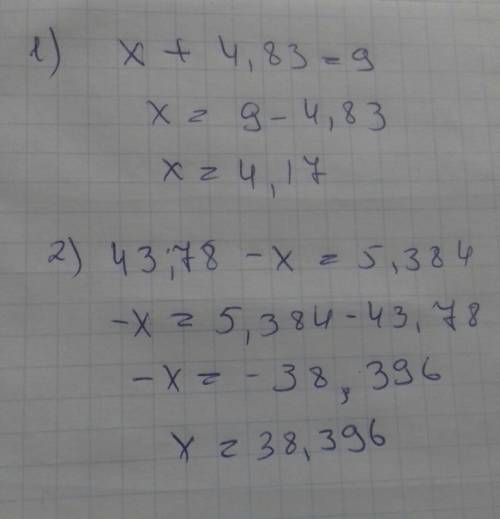 1) x + 4,83 = 9
x = 9 - 4,83
x = 4,17
2) 43,78 - x = 5,384
-x = 5,384 - 43,78
-x = -38,396
x = 38,396